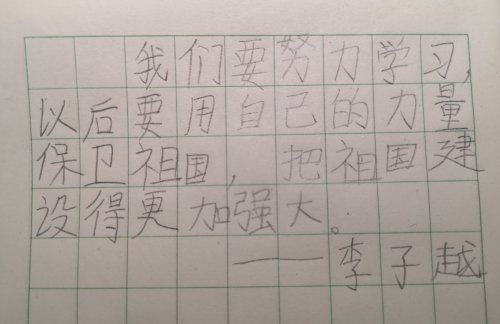 我们要努力学习,
以后要用自己的力量
保卫祖国,把祖国建
设得更加强大。
——李子越